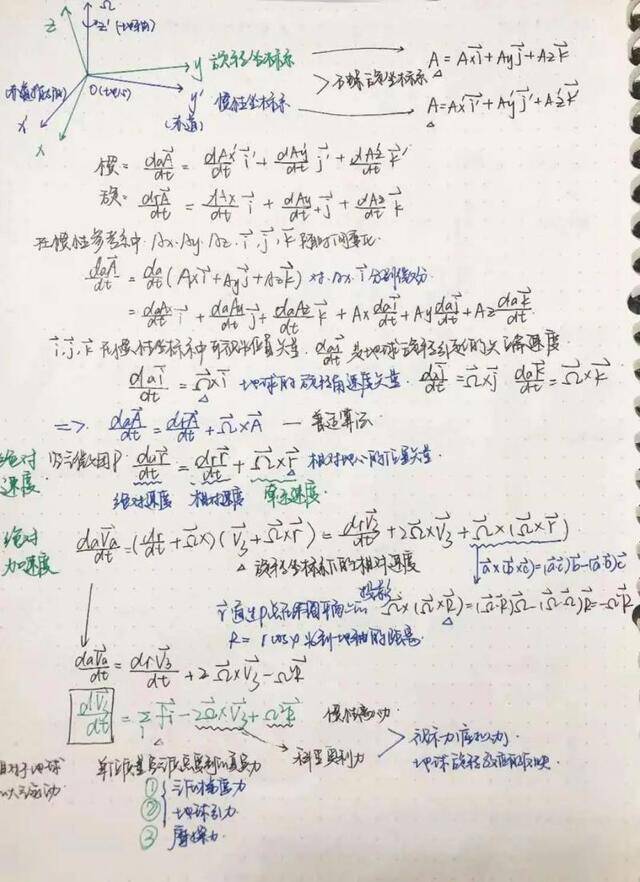 Ω
z z' (地轴)
y 旋转坐标系
A = Axi⃗ + Ayj⃗ + Azk⃗
(赤道指向)
O(地心)
y' 惯性坐标系
(赤道)
A = Ax'i⃗' + Ay'j⃗' + Az'k⃗'
x'
x
惯: daA⃗/dt = dAx'/dt i⃗' + dAy'/dt j⃗' + dAz'/dt k⃗'
旋: drA⃗/dt = dAx/dt i⃗ + dAy/dt j⃗ + dAz/dt k⃗
在惯性参考系中. Ax. Ay. Az. i⃗. j⃗. k⃗ 随时间变化
daA⃗/dt = da/dt (Axi⃗ + Ayj⃗ + Azk⃗) 对 Ax. i⃗ 分别微分
= daAx/dt i⃗ + daAy/dt j⃗ + daAz/dt k⃗ + Ax dai⃗/dt + Ay daj⃗/dt + Az dak⃗/dt
i⃗, j⃗, k⃗ 在惯性坐标系中 位置矢量. dai⃗/dt 为地球旋转引起的 速度
dai⃗/dt = Ω⃗×i⃗ 地球的旋转角速度矢量. daj⃗/dt = Ω⃗×j⃗ dak⃗/dt = Ω⃗×k⃗
=> daA⃗/dt = drA⃗/dt + Ω⃗×A⃗ — 普适算法
绝对速度 P dar⃗/dt = drr⃗/dt + Ω⃗×r⃗ 相对地心的位置矢量
绝对速度 相对速度 牵连速度
绝对加速度 daV⃗a/dt = (dr/dt + Ω⃗×)(V⃗3 + Ω⃗×r⃗) = drV⃗3/dt + 2Ω⃗×V⃗3 + Ω⃗×(Ω⃗×r⃗)
旋转坐标系下的相对速度
a⃗×(b⃗×c⃗)=(a⃗·c⃗)b⃗-(a⃗·b⃗)c⃗
r⃗ 通过P点在纬圈平面上的投影 Ω⃗×(Ω⃗×R⃗) = (Ω⃗·R⃗)Ω⃗ - (Ω⃗·Ω⃗)R⃗ = -Ω²R⃗
R = r cosφ 为到地轴的距离
daV⃗a/dt = drV⃗3/dt + 2Ω⃗×V⃗3 - Ω²R⃗
dV⃗3/dt = Σ F⃗i - 2Ω⃗×V⃗3 + Ω²R⃗ 惯性离心力
科里奥利力
视示力(虚拟力)
地球旋转效应的反映
相对于地球的运动
单位质量空气质点受到的真实力
① 气压梯度力
② 地球引力
③ 摩擦力